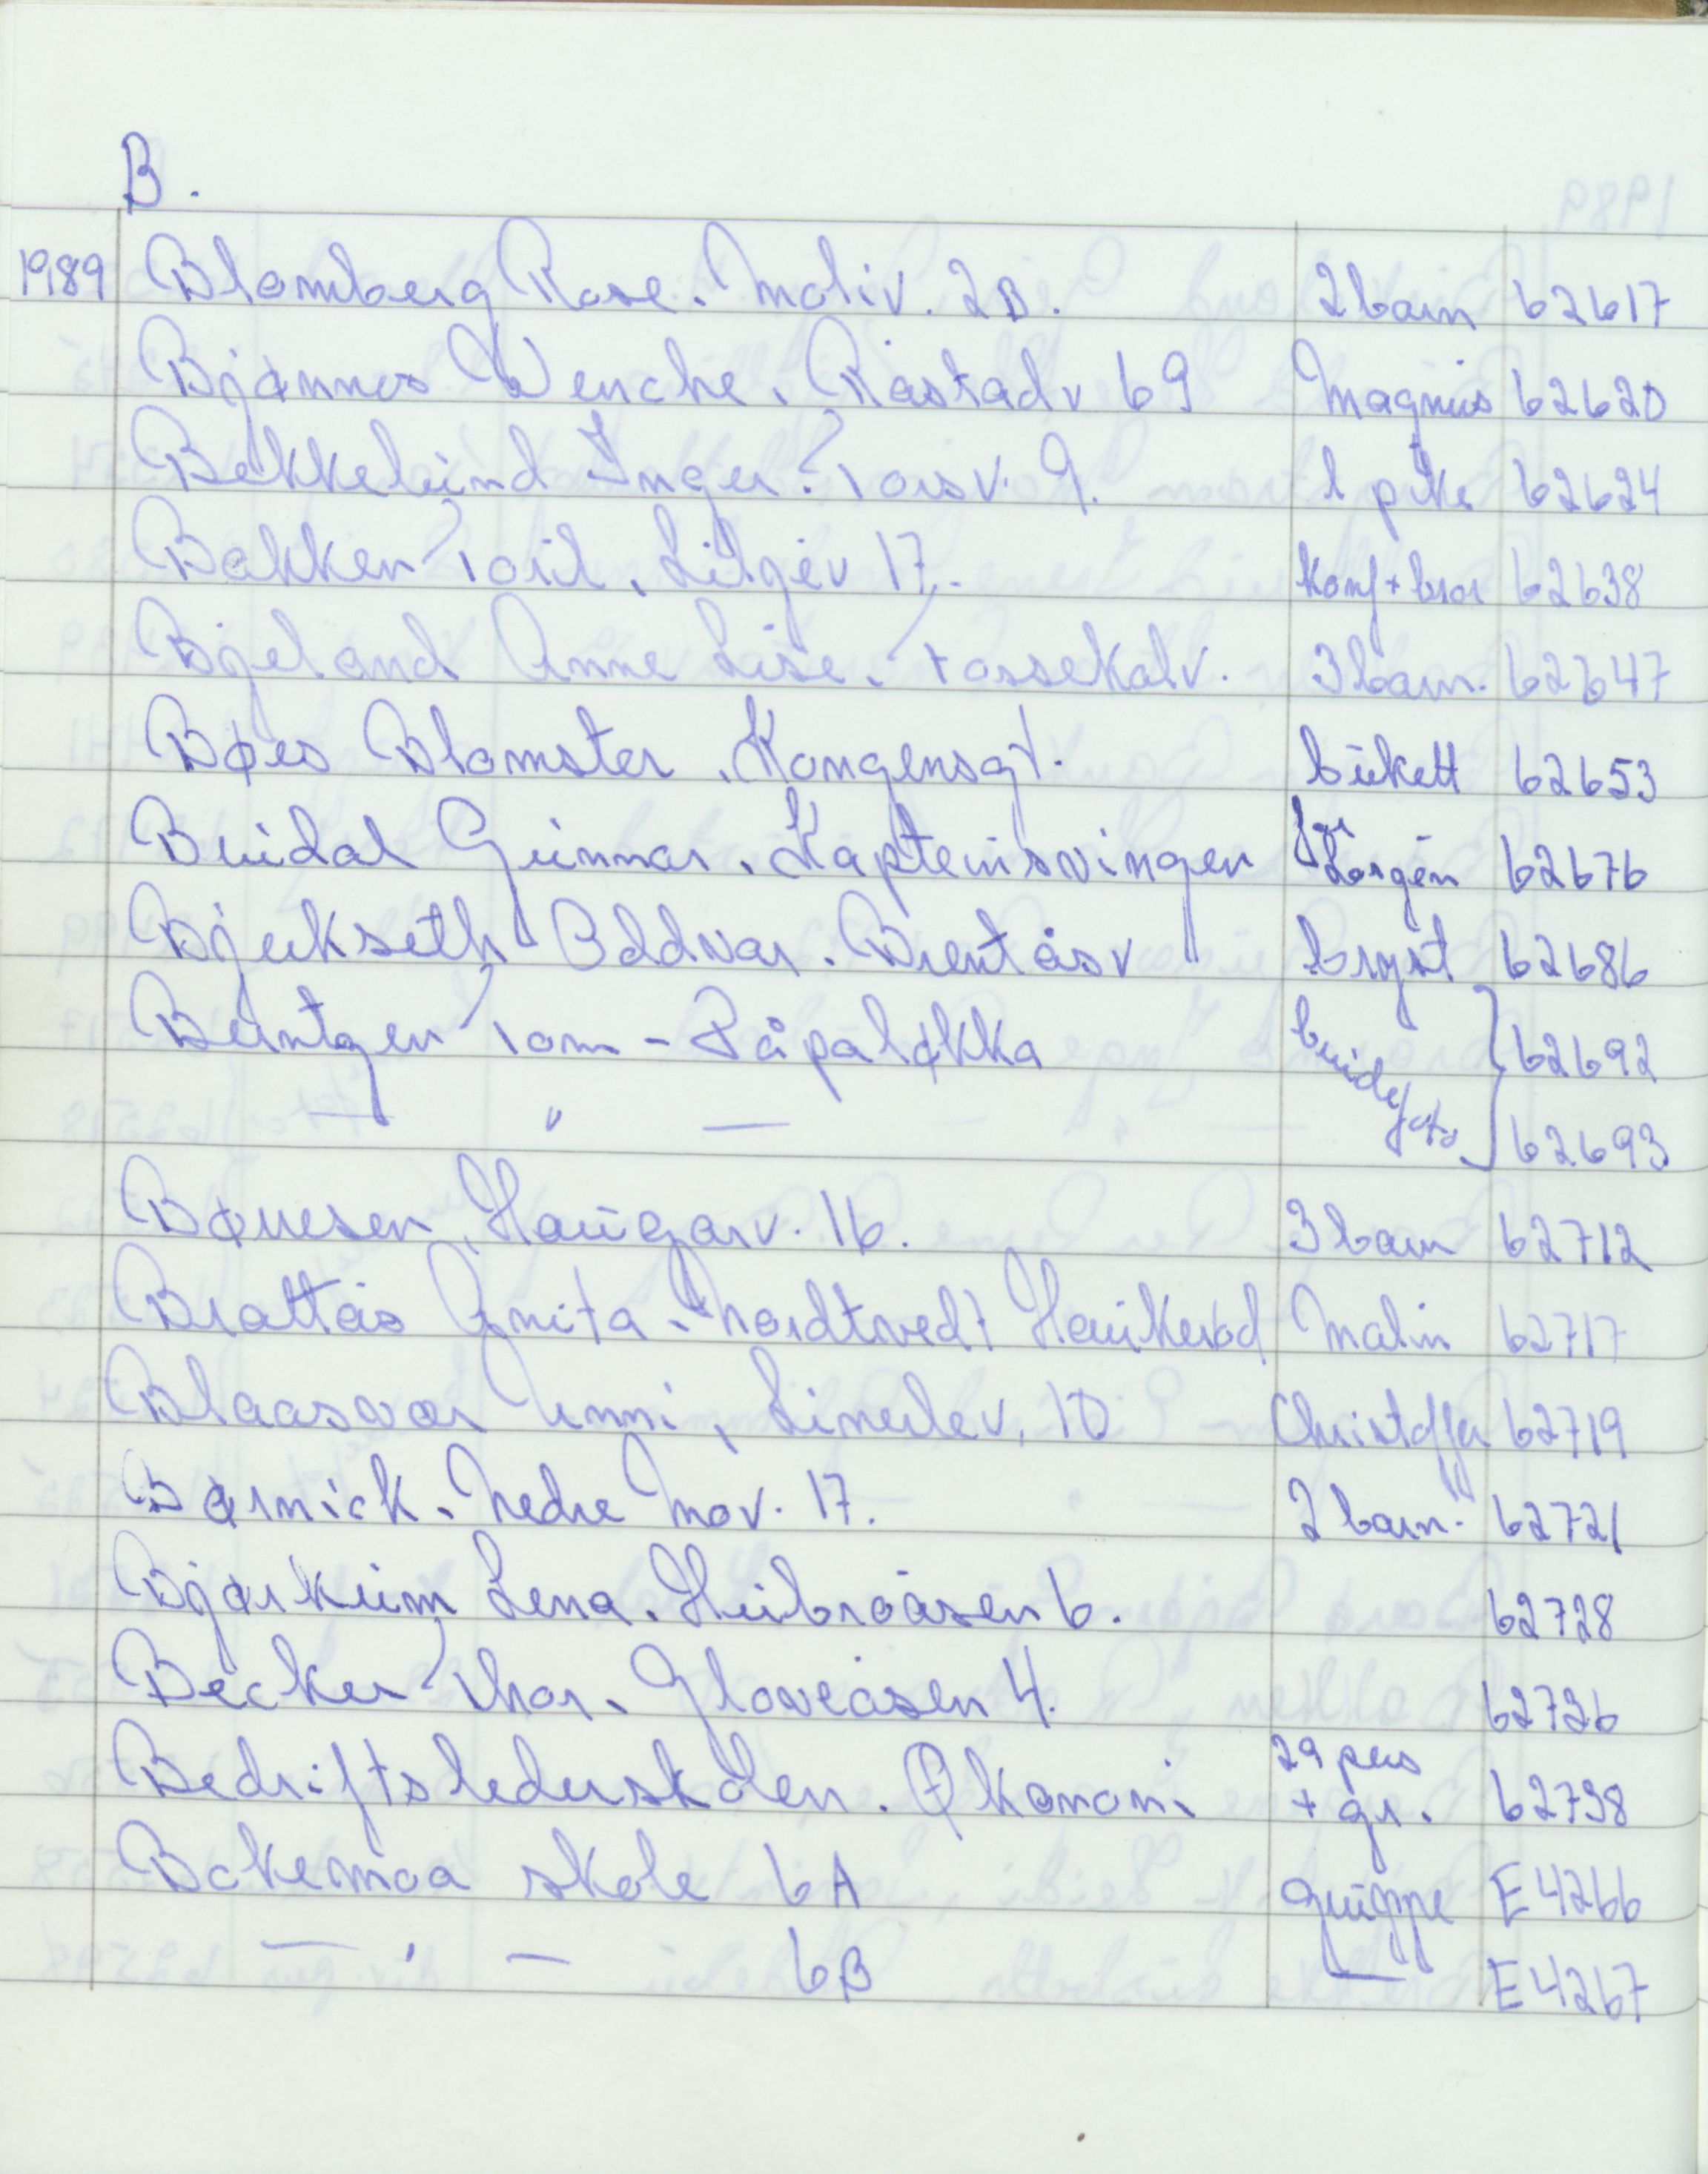 B.
1989 Blomberg Rose. Moliv. 2B. 2 barn 62617
Bjønnes Wenche. Råstadv 69 Magnus 62620
Bekkelund Inger. Torsv. 9. 1 pike 62624
Bakken Toril. Lilgév 17. Konf + bror 62638
Bjelland Anne Lise. Fossekalv. 3 barn. 62647
Bøes Blomster. Kongensgt. bukett 62653
Buidal Gunnar. Kapteinsvingen Jørgen 62676
Bjerkseth Oddvar. Brentåsv bryst 62686
Berntzen Tom - Påpaløkka brudefoto 62692
— " — 62693
Børresen, Haugarv. 16. 3 barn 62712
Brattås Anita. Nordtvedt Haukerød Malin 62717
Blaasvær Unni, Linerlev. 10 Christoffer 62719
Børnick. Nedre Mov. 17. 2 barn. 62721
Bjørkum Lena. Heibroåsen 6. 62728
Becker Thor. Gloveåsen 4. 62726
Bedriftslederskolen. Økonomi 29 pers + gr. 62738
Bakemoa skole 6A gruppe E4266
— " — 6B — E4267